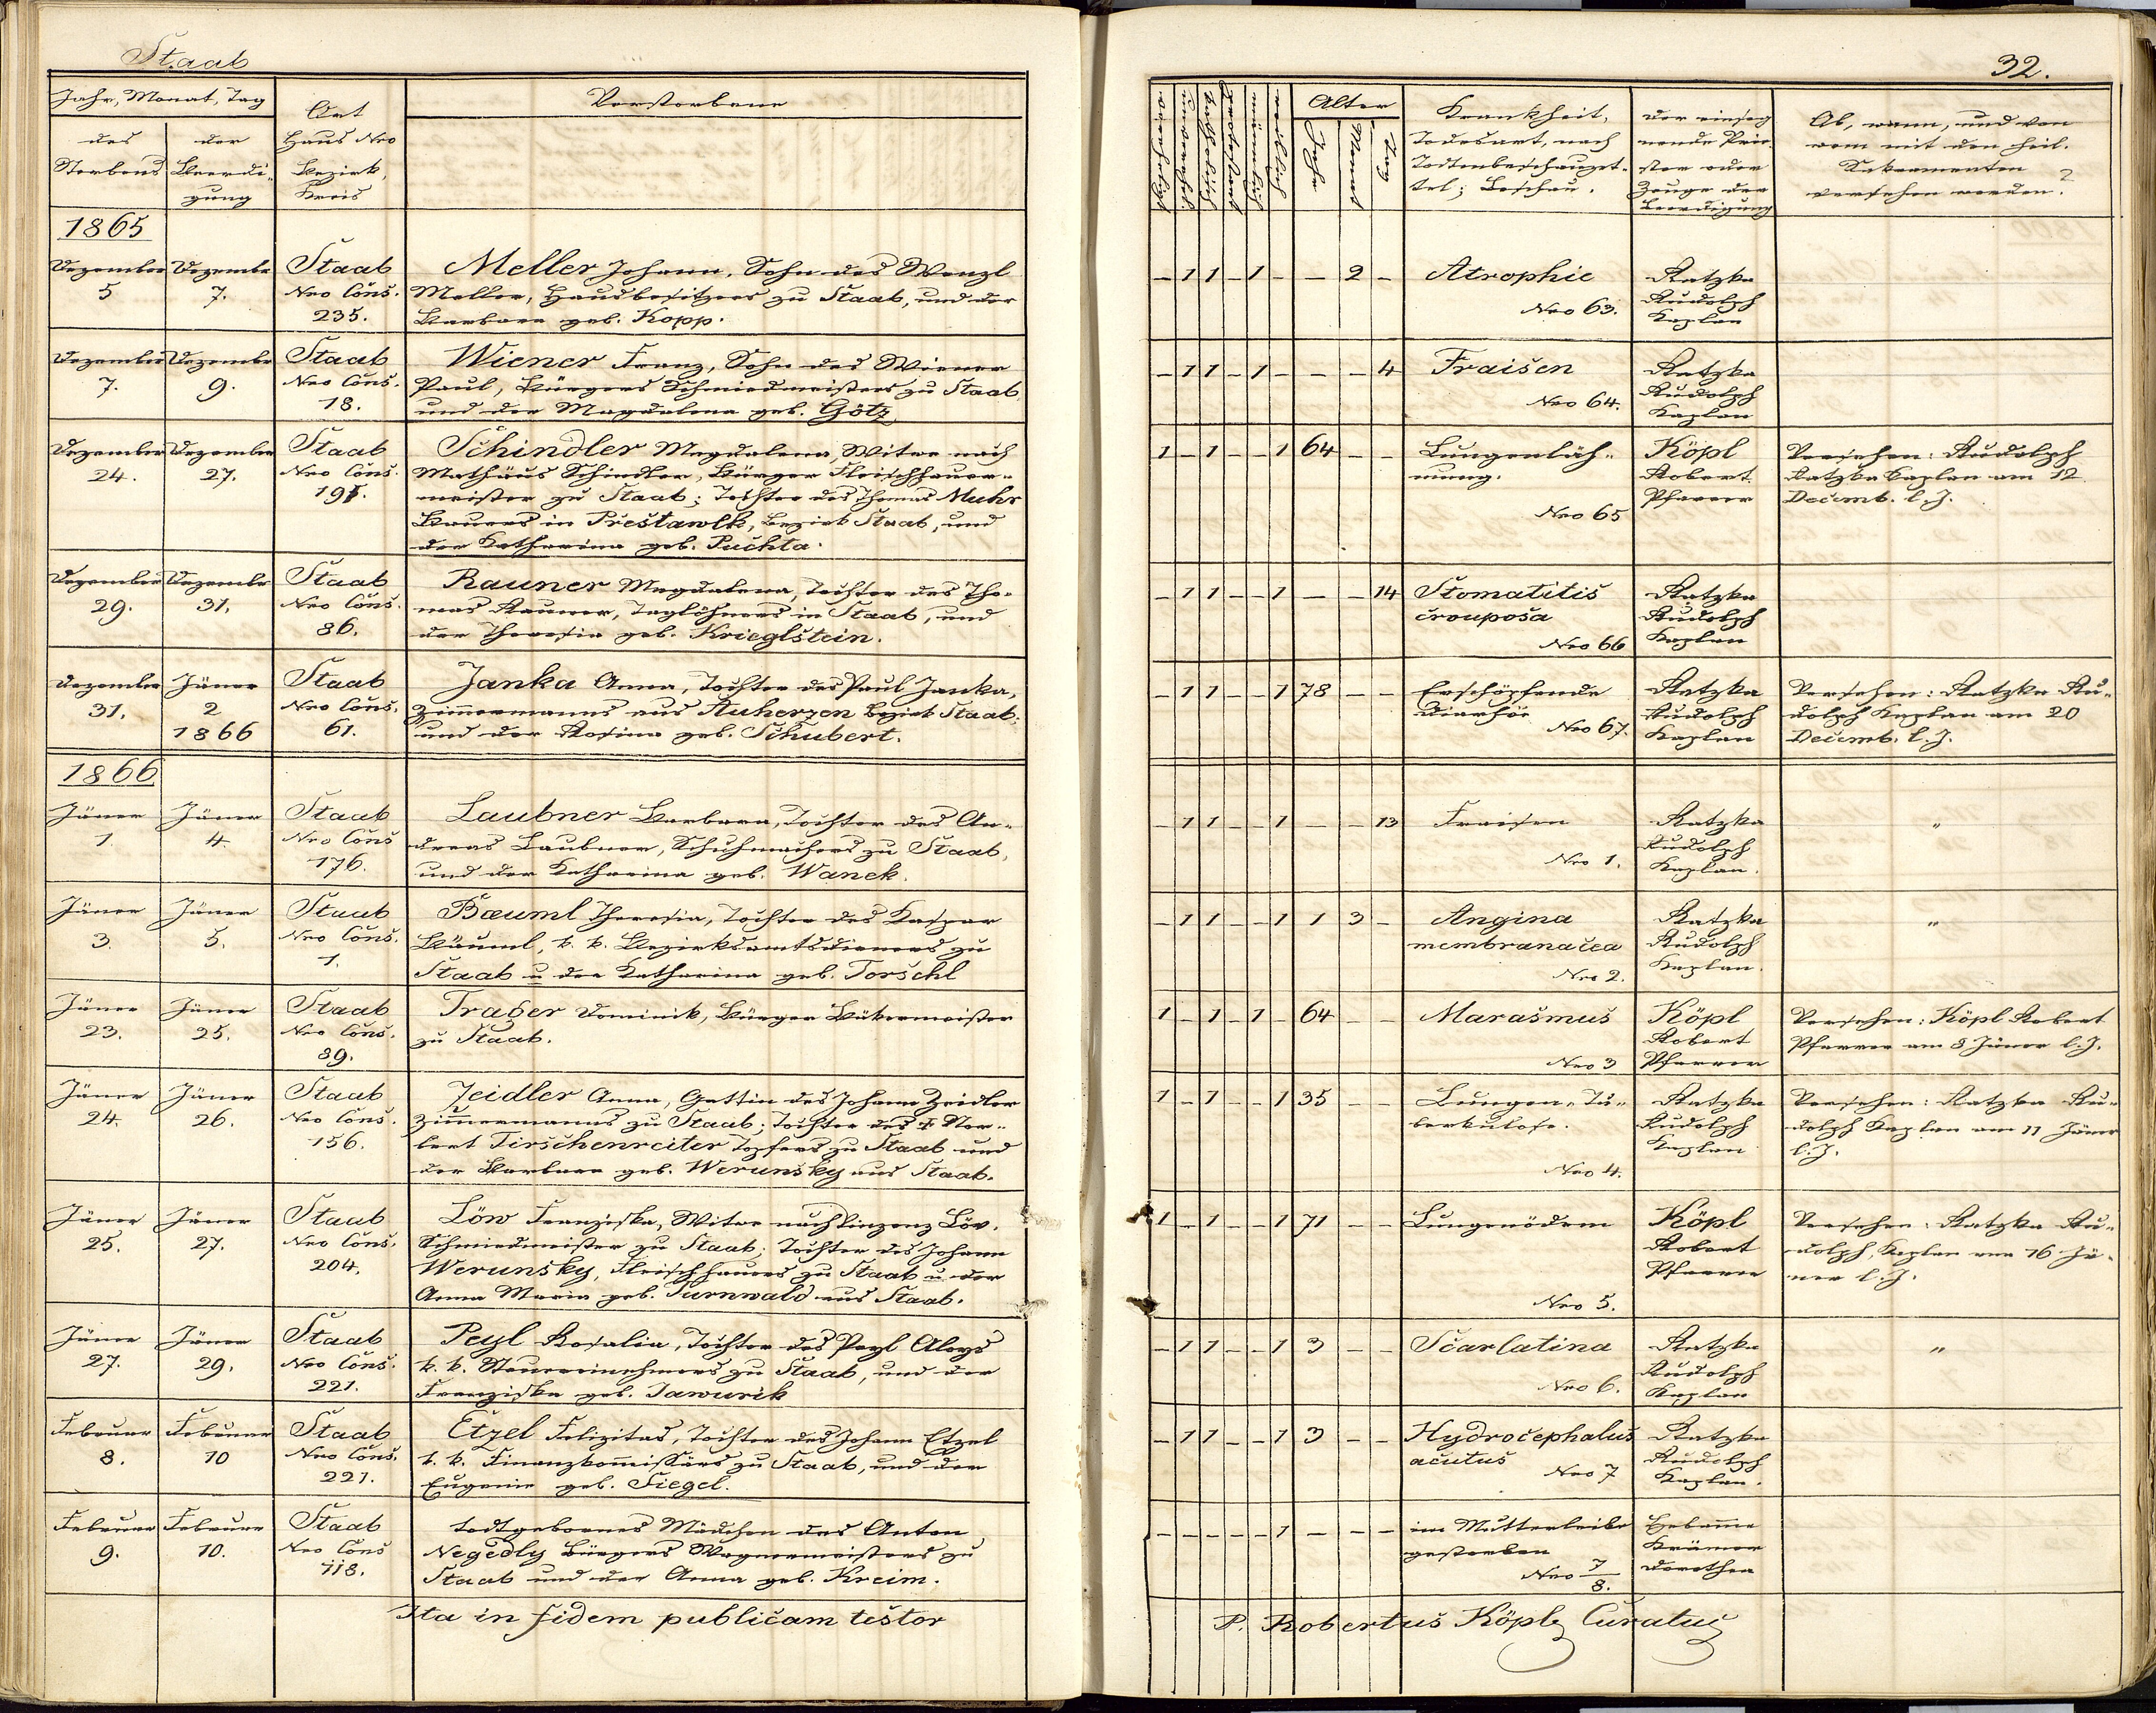 Staab
Jahr, Monat, Tag
des Sterbens
der Beerdi-
gung
Ort
Haus Nro
Bezirk,
Kreis
Verstorbene
1865
Dezember 5
Dezember 7.
Staab
Nro Cons.
235.
Meller Johann, Sohn des Wenzl
Meller, Hausbesitzers zu Staab, und der
Barbara geb. Kopp.
Dezember 7.
Dezember 9.
Staab
Nro Cons.
18.
Wiener Franz, Sohn des Wiener
Paul, Bürgers Schmiedmeisters zu Staab,
und der Magdalena geb. Götz
Dezember 24.
Dezember 27.
Staab
Nro Cons.
Schindler Magdalena Witwe nach
Mathäus Schindler, Bürger Fleischhauer-
meister zu Staab; Tochter des Thomas Muhr
Bauers in Prestawlk, Bezirk Staab, und
der Katharina geb. Puchta.
Dezember 29.
Dezember 31.
Staab
Nro Cons.
86.
Rauner Magdalena, Tochter des Tho-
mas Rauner, Taglöhners in Staab, und
der Theresia geb. Krieglstein.
Dezember 31.
Jäner 2
1866
Staab
Nro Cons.
61.
Janka Anna, Tochter des Paul Janka,
Zimmermanns aus Auherzen Bezirk Staab,
und der Rosina geb. Schubert.
1866
Jäner 1.
Jäner 4.
Staab
Nro Cons
176.
Laubner Barbara, Tochter des An-
dreas Laubner, Schuhmachers zu Staab,
und der Katharina geb. Wanek.
Jäner 3.
Jäner 5.
Staab
Nro Cons.
1.
Bæuml Theresia, Tochter des Kaspar
Bäuml, k. k. Bezirksamtsdieners zu
Staab u der Katharina geb. Torschl
Jäner 23.
Jäner 25.
Staab
Nro Cons.
89.
Trager Dominik, Bürger Bäckermeister
zu Staab.
Jäner 24.
Jäner 26.
Staab
Nro Cons.
156.
Zeidler Anna, Gattin des Johann Zeidler
Zimmermanns zu Staab; Tochter des † Nor-
bert Tirschenreiter Topfers zu Staab und
der Barbara geb. Werunsky aus Staab.
Jäner 25.
Jäner 27.
Staab
Nro Cons.
204.
Löw Franziska, Witwe nach Vinzenz Löw,
Schmiedmeister zu Staab; Tochter des Johann
Werunsky, Fleischhauers zu Staab u der
Anna Maria geb. Turnwald aus Staab.
Jäner 27.
Jäner 29.
Staab
Nro Cons.
221.
Peyl Rosalia, Tochter des Peyl Aloys
k. k. Steuereinnehmers zu Staab, und der
Franziska geb. Jawurik
Februar 8.
Februar 10
Staab
Nro Cons.
221.
Etzel Felizitas, Tochter des Johann Etzel
k. k. Finanzkommissärs zu Staab, und der
Eugenie geb. Siegel.
Februar 9.
Februar 10.
Staab
Nro Cons
118.
todtgebornes Mädchen des Anton
Negedly Bürgers Wagnermeisters zu
Staab und der Anna geb. Kreim.
Ita in fidem publicam testor
32.
verehelicht
unverehel.
katholisch
protestant
männlich
weiblich
Alter
Jahr
Monat
Tag
Krankheit,
Todesart, nach
Todtenbeschauzet-
tel; Beschau.
der einseg
nende Prie-
ster oder
Zeuge der
Beerdigung
Ob, wann, und von
wem mit den heil.
Sakramenten
versehen worden?
- 1 1 - 1 - - 2 - Atrophie
Nro 63.
Ratzka
Rudolph
Kaplan
- 1 1 - 1 - - - 4 Fraisen
Nro 64.
Ratzka
Rudolph
Kaplan
1 - 1 - - 1 64 - - Lungenläh-
mung.
Nro 65
Köpl
Robert
Pfarrer
Versehen: Rudolph
Ratzka Kaplan am 12
Decemb. l. J.
- 1 1 - - 1 - - 14 Stomatitis
crouposa
Nro 66
Ratzka
Rudolph
Kaplan
- 1 1 - - 1 78 - - Erschöpfende
Diarhöe
Nro 67.
Ratzka
Rudolph
Kaplan
Versehen: Ratzka Ru-
dolph Kaplan am 20
Decemb. l. J.
- 1 1 - - 1 - - 13 Fraisen
Nro 1.
Ratzka
Rudolph
Kaplan.
"
- 1 1 - - 1 1 3 - Angina
membranacea
Nro 2.
Ratzka
Rudolph
Kaplan.
"
1 - 1 - 1 - 64 - - Marasmus
Nro 3
Köpl
Robert
Pfarrer
Versehen: Köpl Robert
Pfarrer am 8 Jäner l. J.
1 - 1 - - 1 35 - - Lungen-Tu-
berkulose.
Nro 4.
Ratzka
Rudolph
Kaplan
Versehen: Ratzka Ru-
dolph Kaplan am 11 Jäner
l. J.
1 - 1 - - 1 71 - - Lungenödem
Nro 5.
Köpl
Robert
Pfarrer
Versehen: Ratzka Ru-
dolph, Kaplan am 16 Jä-
ner l. J.
- 1 1 - - 1 3 - - Scarlatina
Nro 6.
Ratzka
Rudolph
Kaplan
"
- 1 1 - - 1 3 - - Hydrocephalus
acutus
Nro 7
Ratzka
Rudolph
Kaplan.
- - - - - 1 - - - im Mutterleibe
gestorben
Nro 7/8.
Hebamme
Krämer
Dorothea
P. Robertus Köpl Curatus